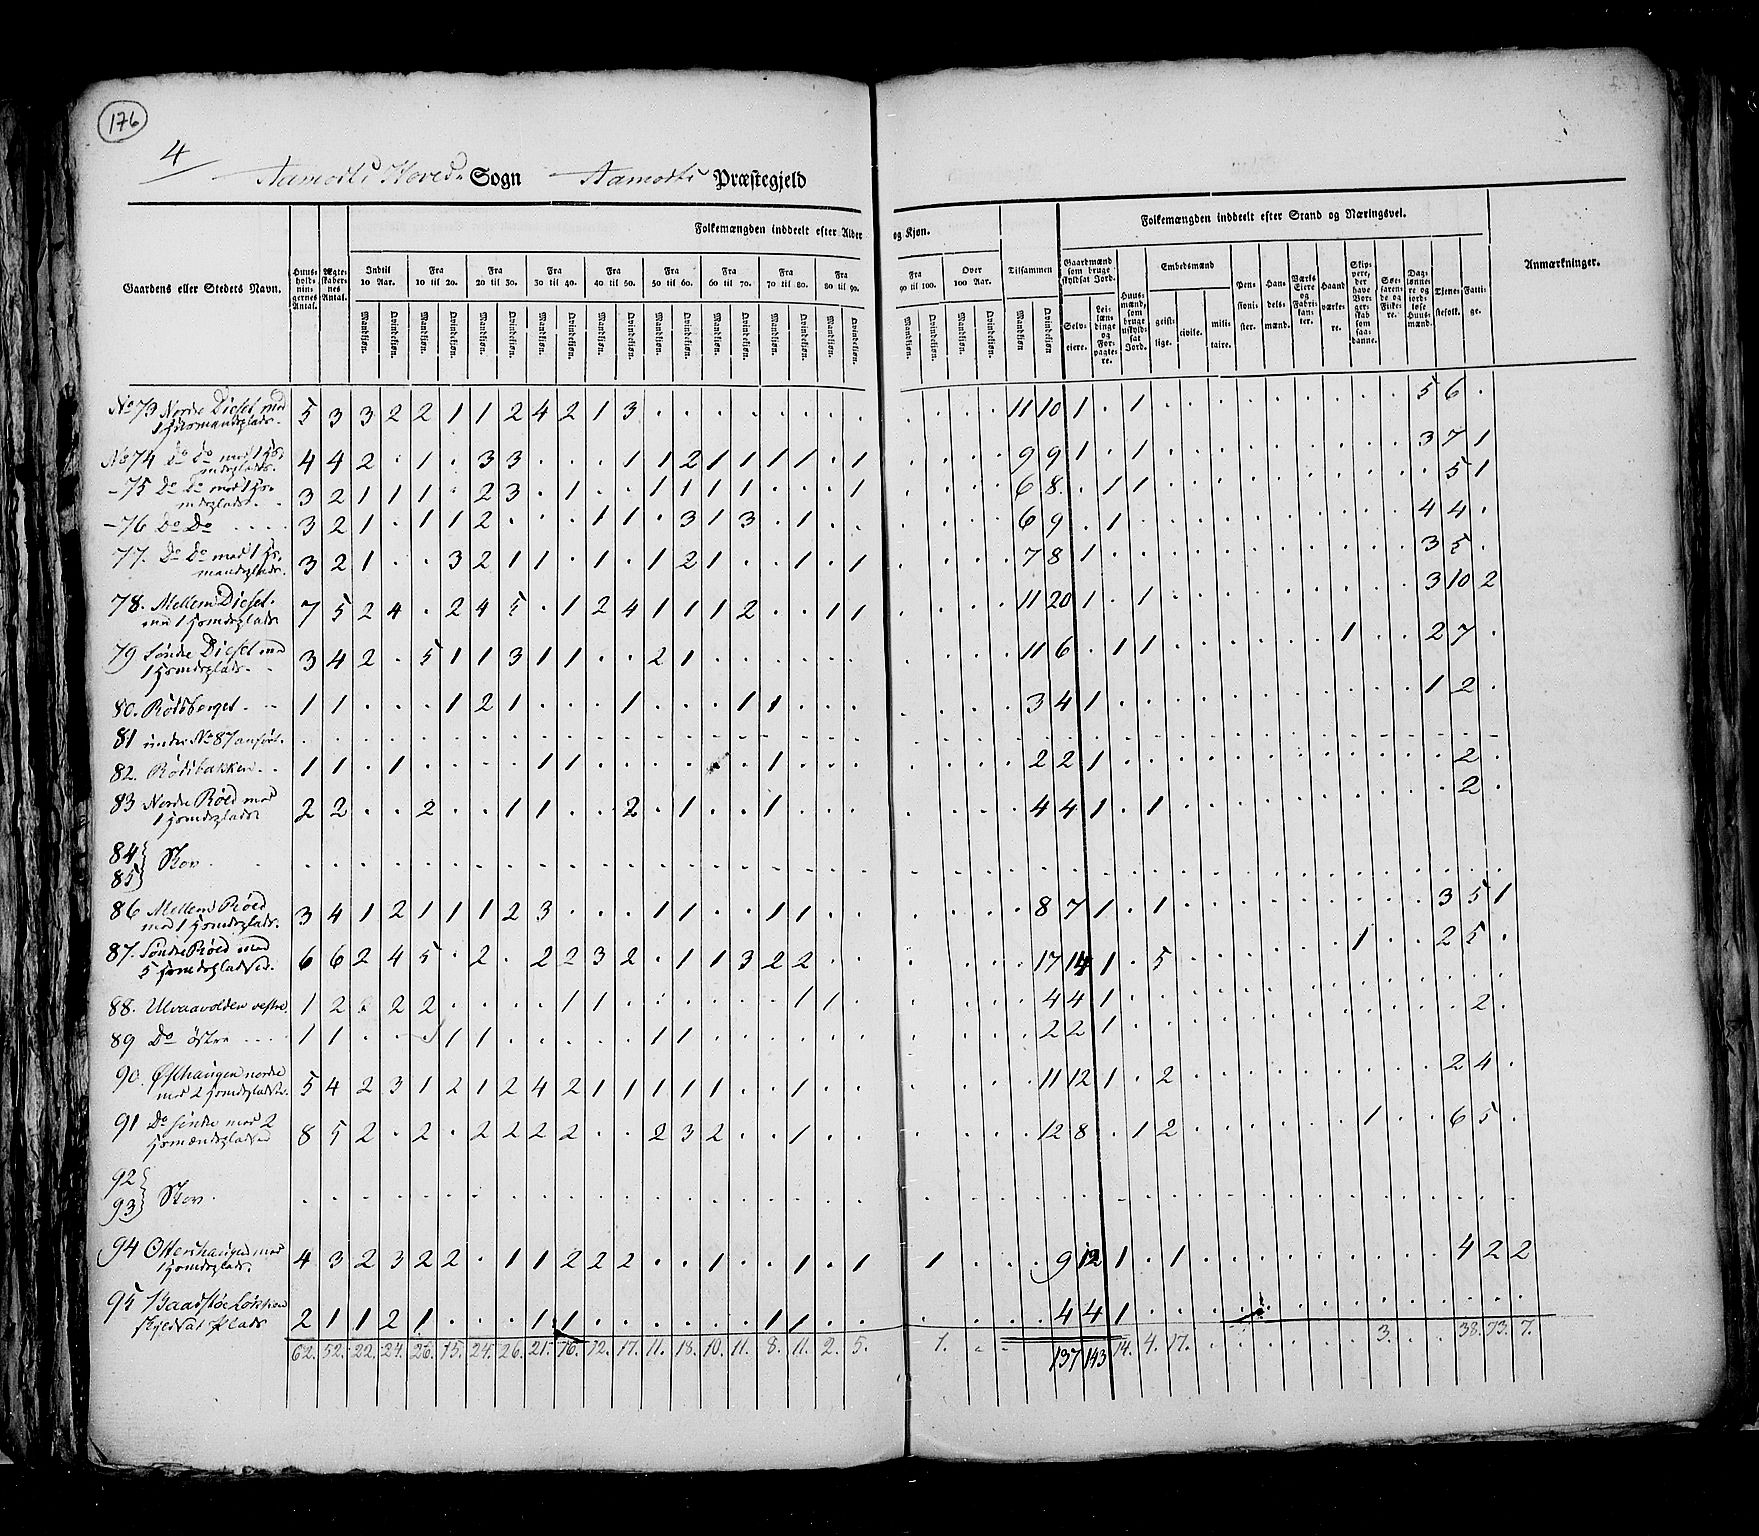 176
4
Aamodts Hoved Sogn Aamodts Præstegjeld
Folkemængden inddeelt efter Alder og Kjøn.
Folkemængden inddeelt efter Stand og Næringsvei.
Gaardens eller Stedets Navn.
Huusholdningernes Antal.
Ægteskabernes Antal.
Indtil 10 Aar.
Fra 10 til 20.
Fra 20 til 30.
Fra 30 til 40.
Fra 40 til 50.
Fra 50 til 60.
Fra 60 til 70.
Fra 70 til 80.
Fra 80 til 90.
Fra 90 til 100.
Over 100 Aar.
Tilsammen
Mandkjøn. Qvindekjøn.
Gaardmænd som bruge skyldsat Jord.
Selveiere.
Leilændinge og Forpagtere.
Huusmænd, som bruge uskyldsat Jord.
Embedsmænd
geistlige. civile. militaire.
Pensionister.
Handelsmænd.
Værkseiere og Fabrikanter.
Haandværkere.
Skippere, der have Borgerskab som saadanne.
Søefarende og Fiskere.
Daglønnere og jordløse Huusmænd.
Tjenestefolk.
Fattige.
Anmærkninger.
No 73 Nordre Dieset med
5 3 3 2 2 1 1 2 4 2 1 3 . . . . . . . . . . . . 11 10 1 . 1 . . . . . . . . . 5 6 .
No 74 Do Do med 1
4 4 2 . 1 . 3 3 . . . 1 1 2 1 1 1 1 . 1 . . . . 9 9 1 . 1 . . . . . . . . . 3 7 1
- 75 Do Do med 1
3 2 1 1 1 . 2 3 . 1 . . 1 1 1 1 . . . 1 . . . . 6 8 . 1 1 . . . . . . . . . . 5 1
- 76 Do Do
3 2 1 . 1 1 2 . . . 1 1 . 3 1 3 . 1 . . . . . . 6 9 . 1 . . . . . . . . . . 4 4 .
77. Do Do med 1
3 2 1 . . 3 2 1 1 . 1 . 1 2 1 . . 1 . 1 . . . . 7 8 1 . . . . . . . . . . . 3 5 .
78. Mellem Dieset
7 5 2 4 . 2 4 5 . 1 2 4 1 1 1 2 . . 1 1 . . . . 11 20 1 . 1 . . . . . . . . . 3 10 2
79 Søndre Dieset med
3 4 2 . 5 1 1 3 1 1 . . 2 1 . . . . . . . . . . 11 6 . 1 1 . . . . . . 1 . . 2 7 .
80. Rødsberget
1 1 . . . 1 2 1 . . . 1 . . . 1 1 . . . . . . . 3 4 1 . . . . . . . . . . . 1 2 .
81 under No 87 anført.
82. Rødsbakken
1 1 . 1 . . . . 1 1 . . . . . . 1 . . . . . . . 2 2 1 . . . . . . . . . . . . 2 .
83 Nordre Røed med
2 2 . . 2 . . 1 1 . . 2 . 1 . . 1 . . . . . . . 4 4 1 . 1 . . . . . . . . . . 2 .
84
85 Skov
86 Mellem Røed
3 4 1 2 1 1 1 2 3 . . . 1 1 . . 1 1 . . . . . . 8 7 1 . 1 . . . . . . . . . 3 5 1
87. Søndre Røed med
6 6 2 4 5 . 2 . 2 2 3 2 . 1 1 3 2 2 . . . . . . 17 14 1 . 5 . . . . . . 1 . . 2 5 .
88. Ulvaavolden vestre
1 2 . 2 2 . . . . 1 1 . . . . . . 1 1 . . . . . 4 4 1
89 Do østre
1 1 . . . 1 1 . . . . . 1 1 . . . . . . . . . . 2 2 1 . . . . . . . . . . . . 2 .
90. Østhaugen nordre
5 4 2 3 1 2 1 2 4 2 1 1 1 1 1 . . 1 . . . . . . 11 12 1 . 2 . . . . . . . . . 2 4 .
91 Do søndre med 2
8 5 2 . 2 . 2 2 2 2 . . 2 3 2 . . 1 . . . . . . 12 8 . 1 2 . . . . . . 1 . . 6 5 .
92
93 Skov
94 Ottershaugen med
4 3 2 3 2 2 . 1 1 2 2 2 . . 1 . . 1 . 1 . 1 . . 9 12 1 . 1 . . . . . . . . . 4 2 2
95
2 1 1 2 1 . . . 1 1 . . . . . . 1 1 . . . . . . 4 4 1
62. 52. 22. 24. 26. 15. 24. 26. 21. 16. 12. 17. 11. 18. 10. 11. 8. 11. 2. 5. . 1. . . 137 143 14. 4. 17. . . . . . . 3. . . 38. 73. 7.